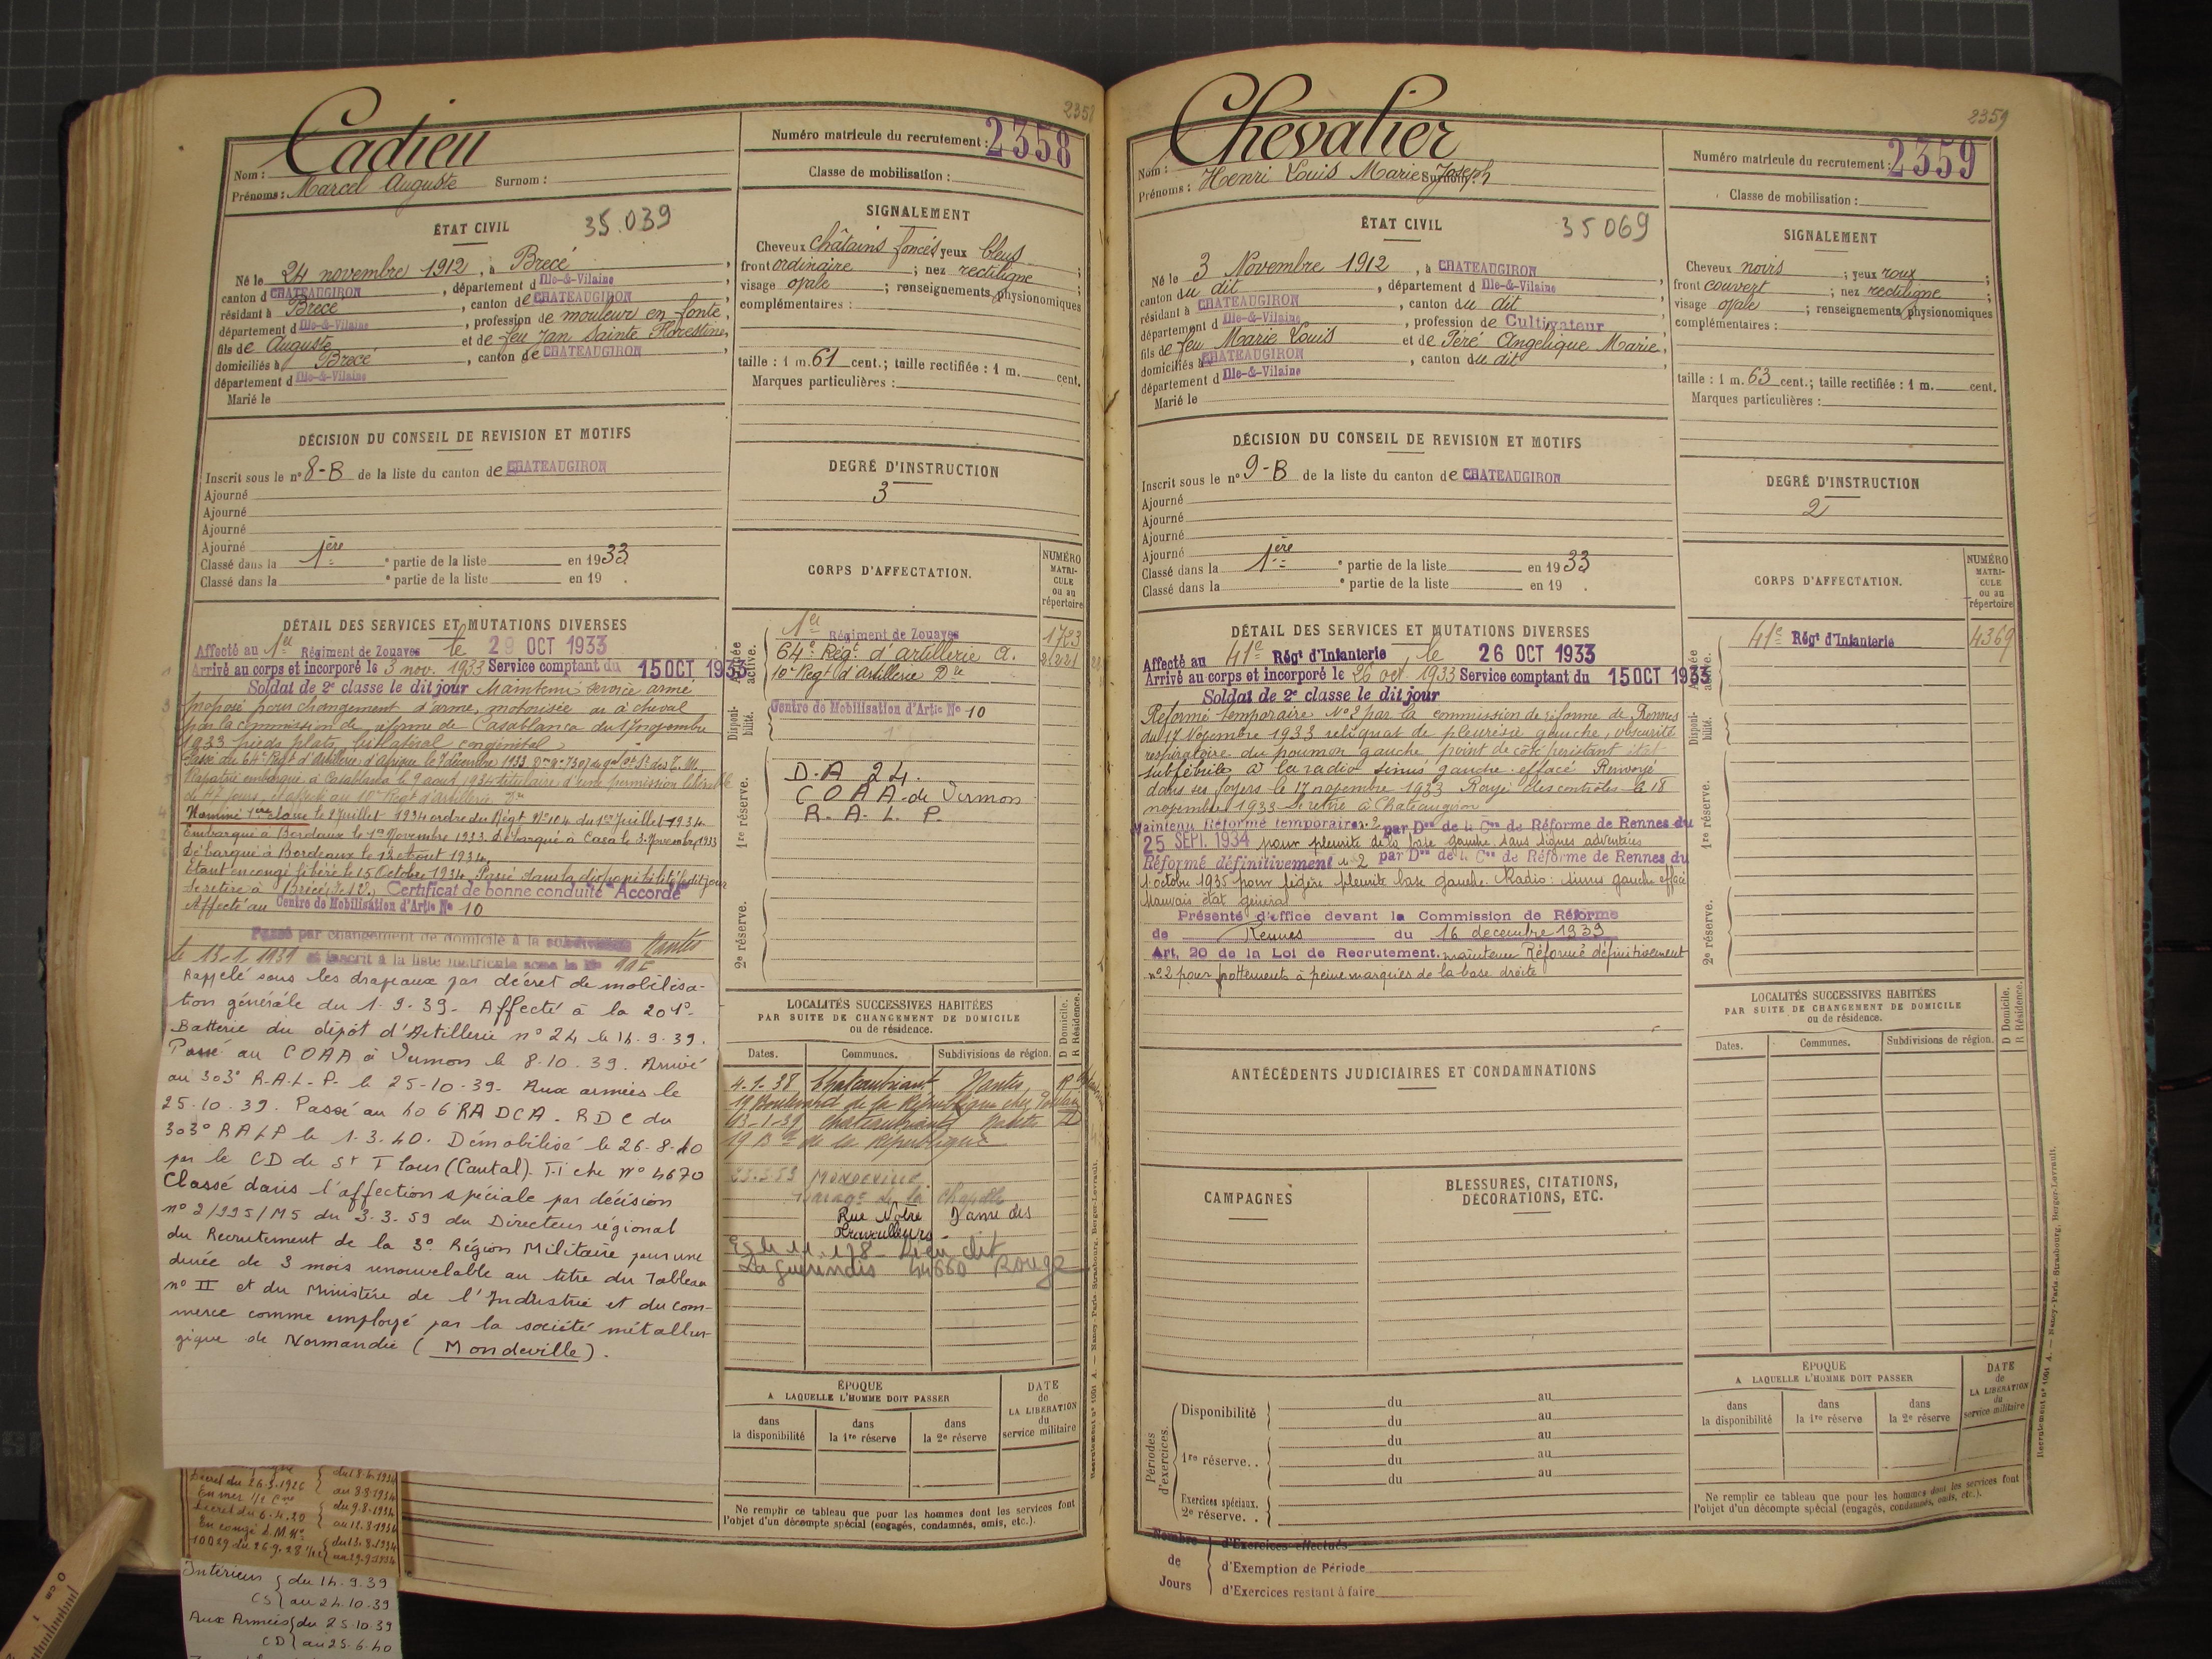 2358
Cadieu
Nom :
Prénoms : Marcel Auguste Surnom :
Numéro matricule du recrutement : 2358
Classe de mobilisation :
ÉTAT CIVIL 35.039
Né le 24 novembre 1912, à Brecé,
canton d CHATEAUGIRON, département d Ille-&-Vilaine
résidant à Brecé, canton de CHATEAUGIRON,
département d Ille-&-Vilaine, profession de mouleur en fonte,
fils de Auguste et de feu Jan Sainte Florestine,
domiciliés à Brecé, canton de CHATEAUGIRON,
département d Ille-&-Vilaine
Marié le
SIGNALEMENT
Cheveux châtains foncés yeux bleus ;
front ordinaire ; nez rectiligne ;
visage ovale ; renseignements physionomiques
complémentaires :
taille : 1 m. 61 cent.; taille rectifiée : 1 m. cent.
Marques particulières :
DÉCISION DU CONSEIL DE REVISION ET MOTIFS
Inscrit sous le nº 8-B de la liste du canton de CHATEAUGIRON
Ajourné
Ajourné
Ajourné
Ajourné
Classé dans la 1ère e partie de la liste en 1933.
Classé dans la e partie de la liste en 19 .
DEGRÉ D'INSTRUCTION
3
DÉTAIL DES SERVICES ET MUTATIONS DIVERSES
Affecté au 1er Régiment de Zouaves le 29 OCT 1933
Arrivé au corps et incorporé le 3 nov. 1933 Service comptant du 15 OCT 1933
Soldat de 2e classe le dit jour Maintenu service armé
proposé pour changement d'arme, motorisée ou à cheval
par la commission de réforme de Casablanca du 17 novembre
1933 pieds plats bilatéral congénital
Passé au 64e Regt d'artillerie d'afrique le 7 décembre 1933
Rapatrié embarqué à Casablanca le 9 aout 1934 titulaire d'une permission libérable
de 47 jours, et affecté au 10e Regt d'artillerie Dre
Nommé 1ère classe le 2 Juillet 1934 ordre du Régt Nº 104 du 1er Juillet 1934
Embarqué à Bordeaux le 1er Novembre 1933. Débarqué à Casa le 3 Novembre 1933
Débarqué à Bordeaux le 12 Aout 1934.
Etant en congé libéré le 15 Octobre 1934. Passé dans la disponibilité ledit jour
Se retire à Brecé, I.et.V. Certificat de bonne conduite "Accordé"
Affecté au Centre de Mobilisation d'Artie Nº 10
Passé par changement de domicile à la subdivision Nantes
le 13-1-1939 et inscrit à la liste matricule sous le Nº
Rappelé sous les drapeaux par décret de mobilisa-
tion générale du 1-9-39. Affecté à la 201e
Batterie du dépôt d'Artillerie nº 24 le 14.9.39.
Passé au COAA à Vernon le 8-10.39. Arrivé
au 303e R.A.L.P. le 25-10-39. Aux armées le
25.10.39. Passé au 406 RADCA. RDC du
303e RALP le 1.3.40. Démobilisé le 26-8-40
par le CD de St Flour (Cantal). Fiche Nº 4670
Classé dans l'affection spéciale par décision
nº 2/995/M5 du 3.3.59 du Directeur régional
du Recrutement de la 3e Région Militaire pour une
durée de 3 mois renouvelable au titre du Tableau
nº II et du Ministère de l'Industrie et du com-
merce comme employé par la société métallur-
gique de Normandie (Mondeville).
Décret du 26.3.1926 { du 8.6.1934
En mer 1/2 Cne au 8.8.1934
Décret du 6.4.30 { du 9.8.1934
En congé D.M. Nº au 12.8.1934
10029 du 26.9.28 { du 13.8.1934
au 29.9.1934
Intérieur { du 14.9.39
CS } au 24.10.39
Aux Armées { du 25.10.39
CD } au 25.6.40
CORPS D'AFFECTATION.
NUMÉRO MATRICULE ou au répertoire
Armée active.
1er Régiment de Zouaves 1723
64e Régt d'artillerie A. 2221
10e Regt d'artillerie Dre
Disponibilité.
Centre de Mobilisation d'Artie Nº 10
1re réserve.
D.A 24.
C O A A. de Vernon
R. A. L. P.
2e réserve.
LOCALITÉS SUCCESSIVES HABITÉES
PAR SUITE DE CHANGEMENT DE DOMICILE
ou de résidence.
D Domicile.
R Résidence.
Dates. Communes. Subdivisions de région.
4-1-38 Chateaubriant Nantes R
19 Boulevard de la République chez
13-1-39 Chateaubriant Nantes D
19 Bd de la République
23.3.53 Mondeville
de la Chapelle
Rue Notre Dame des
Travailleurs
Lieu dit
La Guérindis 44660 Rougé
ÉPOQUE
A LAQUELLE L'HOMME DOIT PASSER
DATE de LA LIBÉRATION du service militaire
dans la disponibilité
dans la 1re réserve
dans la 2e réserve
Ne remplir ce tableau que pour les hommes dont les services font
l'objet d'un décompte spécial (engagés, condamnés, omis, etc.).
Recrutement nº 1001 A. — Nancy-Paris-Strasbourg, Berger-Levrault.
2359
Chevalier
Nom :
Prénoms : Henri Louis Marie Joseph Surnom :
Numéro matricule du recrutement : 2359
Classe de mobilisation :
ÉTAT CIVIL 35069
Né le 3 Novembre 1912, à CHATEAUGIRON,
canton du dit, département d Ille-&-Vilaine
résidant à CHATEAUGIRON, canton du dit
département d Ille-&-Vilaine, profession de Cultivateur
fils de feu Marie Louis et de Péré Angélique Marie,
domiciliés à CHATEAUGIRON, canton du dit
département d Ille-&-Vilaine
Marié le
SIGNALEMENT
Cheveux noirs ; yeux roux ;
front couvert ; nez rectiligne ;
visage ovale ; renseignements physionomiques
complémentaires :
taille : 1 m. 63 cent.; taille rectifiée : 1 m. cent.
Marques particulières :
DÉCISION DU CONSEIL DE REVISION ET MOTIFS
Inscrit sous le nº 9-B de la liste du canton de CHATEAUGIRON
Ajourné
Ajourné
Ajourné
Ajourné
Classé dans la 1ère e partie de la liste en 1933.
Classé dans la e partie de la liste en 19 .
DEGRÉ D'INSTRUCTION
2
DÉTAIL DES SERVICES ET MUTATIONS DIVERSES
Affecté au 41e Régt d'Infanterie, le 26 OCT 1933
Arrivé au corps et incorporé le 26 oct. 1933 Service comptant du 15 OCT 1933
Soldat de 2e classe le dit jour
Réformé temporaire Nº 2 par la commission de réforme de Rennes
du 17 Novembre 1933 reliquat de pleurésie gauche, obscurité
respiratoire du poumon gauche point de côté persistant état
subfébrile à la radio sinus gauche effacé Renvoyé
dans ses foyers le 17 novembre 1933 Rayé des contrôles le 18
novembre 1933 Se retire à Chateaugiron
Maintenu Réformé temporaire n. 2 par Don de la Con de Réforme de Rennes du
25 SEPT. 1934 pour pleurite de la base gauche. sans signes adventices
Réformé définitivement nº 2 par Don de la Con de Réforme de Rennes du
1 octobre 1935 pour légère pleurite base gauche. Radio : sinus gauche effacé
Mauvais état général
Présenté d'office devant la Commission de Réforme
de Rennes du 16 décembre 1939
Art. 20 de la Loi de Recrutement. maintenu Réformé définitivement
nº 2 pour frottements à peine marqués de la base droite
CORPS D'AFFECTATION.
NUMÉRO MATRICULE ou au répertoire
Armée active.
41e Régt d'Infanterie 4369
Disponibilité.
1re réserve.
2e réserve.
LOCALITÉS SUCCESSIVES HABITÉES
PAR SUITE DE CHANGEMENT DE DOMICILE
ou de résidence.
D Domicile.
R Résidence.
Dates. Communes. Subdivisions de région.
ANTÉCÉDENTS JUDICIAIRES ET CONDAMNATIONS
CAMPAGNES
BLESSURES, CITATIONS,
DÉCORATIONS, ETC.
Périodes d'exercices.
Disponibilité du au
du au
1re réserve. . du au
du au
du au
Exercices spéciaux.
2e réserve. .
ÉPOQUE
A LAQUELLE L'HOMME DOIT PASSER
DATE de LA LIBÉRATION du service militaire
dans la disponibilité
dans la 1re réserve
dans la 2e réserve
Ne remplir ce tableau que pour les hommes dont les services font
l'objet d'un décompte spécial (engagés, condamnés, omis, etc.).
Nombre de Jours
d'Exercices effectués
d'Exemption de Période
d'Exercices restant à faire
Recrutement nº 1001 A. — Nancy-Paris-Strasbourg, Berger-Levrault.